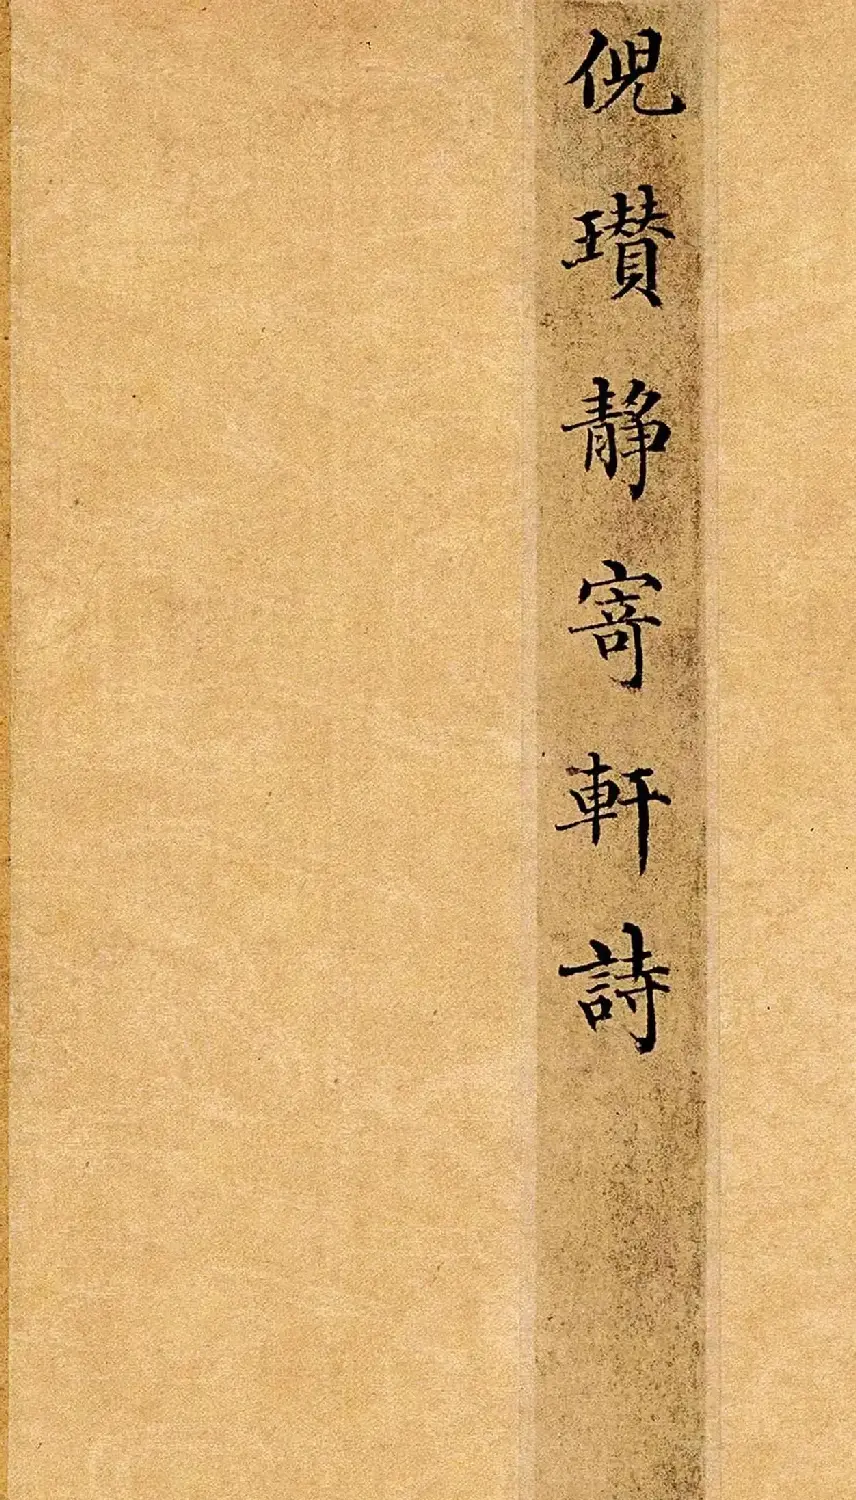 倪瓚静寄軒詩